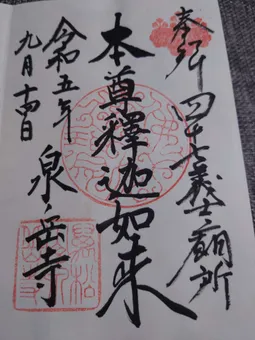 奉拝 四十七義士廟所
本尊釋迦如来
令和五年
九月十四日
泉岳寺